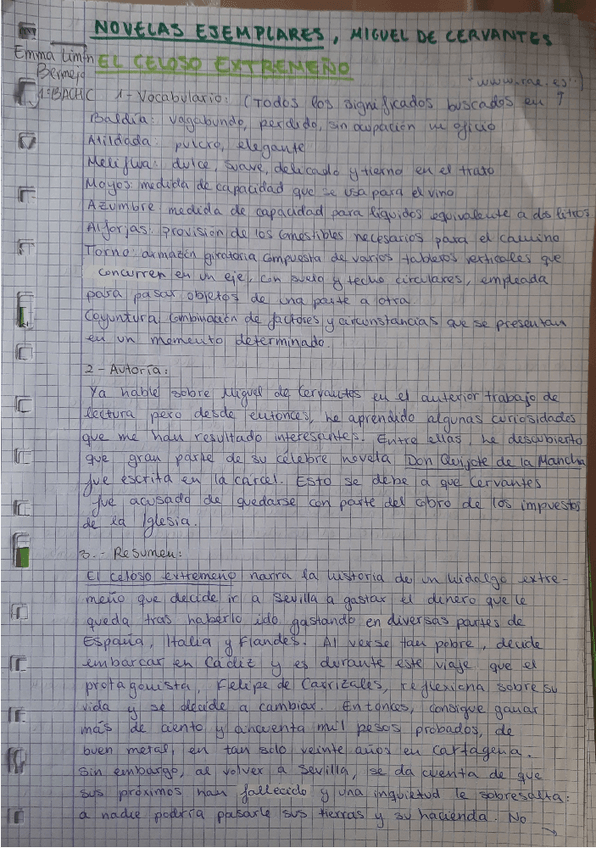 NOVELAS EJEMPLARES, MIGUEL DE CERVANTES
Emma Limón
Bermejo
EL CELOSO EXTREMEÑO
"www.rae.es"
1ºBACHC 1-Vocabulario: (Todos los significados buscados en ↑
Baldía: vagabundo, perdido, sin ocupación ni oficio
Atildada: pulcro, elegante
Meliflua: dulce, suave, delicado y tierno en el trato
Moyos: medida de capacidad que se usa para el vino
Azumbre: medida de capacidad para líquidos equivalente a dos litros
Alforjas: provisión de los comestibles necesarios para el camino
Torno: armazón giratoria compuesta de varios tableros verticales que
concurren en un eje, con suelo y techo circulares, empleada
para pasar objetos de una parte a otra
Coyuntura: combinación de factores y circunstancias que se presentan
en un momento determinado.
2-Autoría:
Ya hablé sobre Miguel de Cervantes en el anterior trabajo de
lectura pero desde entonces, he aprendido algunas curiosidades
que me han resultado interesantes. Entre ellas, he descubierto
que gran parte de su célebre novela Don Quijote de la Mancha
fue escrita en la carcel. Esto se debe a que Cervantes
fue acusado de quedarse con parte del cobro de los impuestos
de la Iglesia.
3.- Resumen:
El celoso extremeño narra la historia de un hidalgo extre-
meño que decide ir a Sevilla a gastar el dinero que le
queda tras haberlo ido gastando en diversas partes de
España, Italia y Flandes. Al verse tan pobre, decide
embarcar en Cádiz y es durante este viaje que el
protagonista, Felipe de Carrizales, reflexiona sobre su
vida y se decide a cambiar. Entonces, consigue ganar
más de ciento y cincuenta mil pesos probados, de
buen metal, en tan solo veinte años en Cartagena.
Sin embargo, al volver a Sevilla, se da cuenta de que
sus próximos han fallecido y una inquietud le sobresalta:
a nadie podría pasarle sus tierras y su hacienda. No